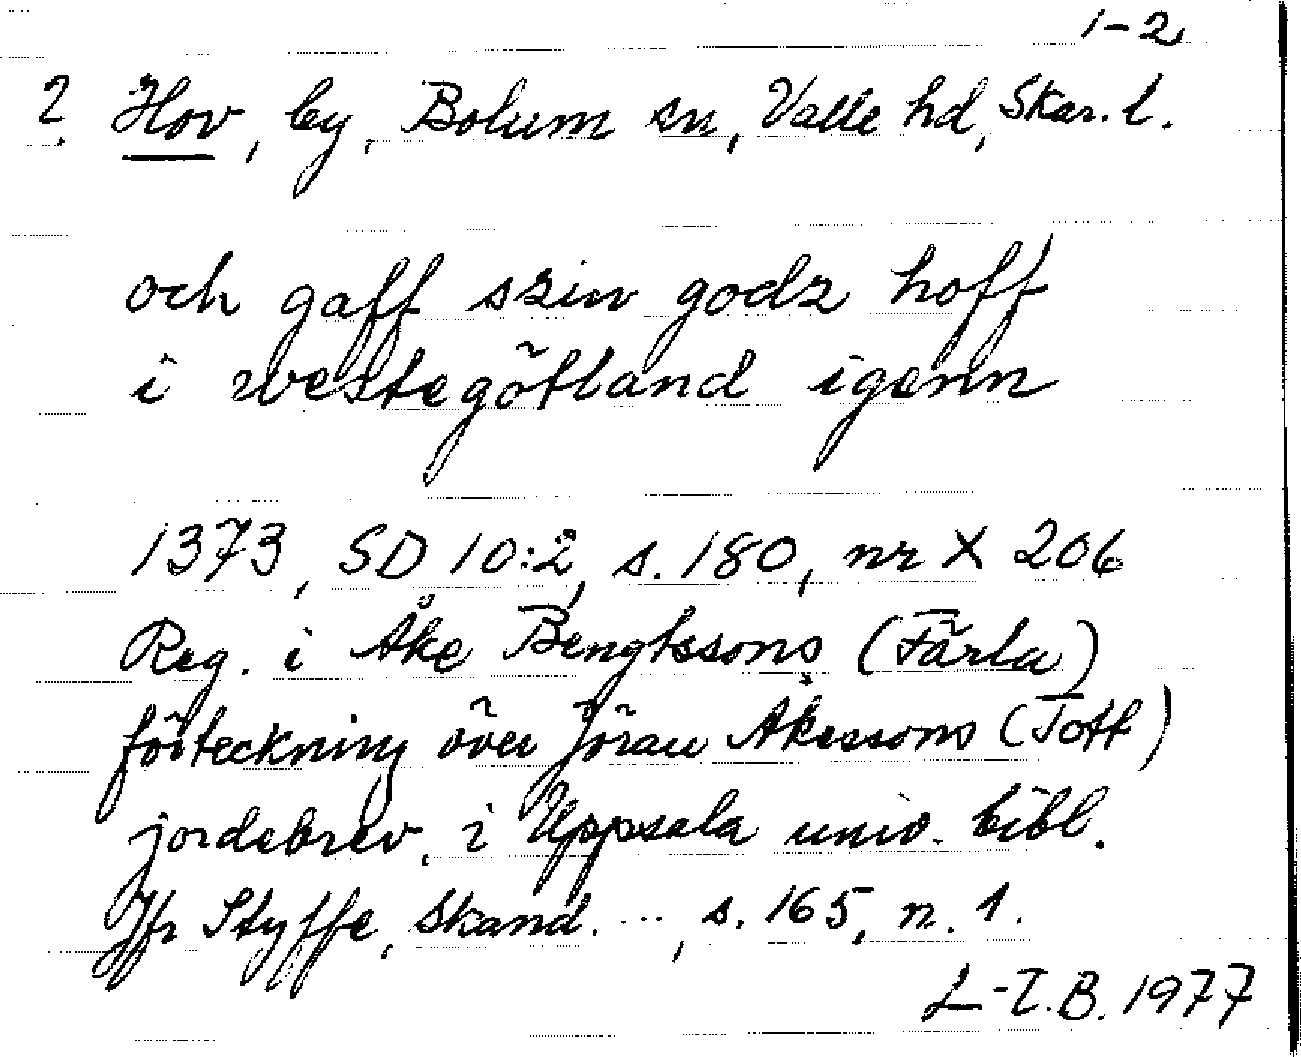 1-2
? Hov, by, Bolum sn, Valle hd, Skar. l.
och gaff szin godz hoff
i westegötland igenn
1373, SD 10:2, s. 180, nr X 206
Reg. i Åke Bengtssons (Färla)
förteckning över Jöran Åkessons (Tott)
jordebrev, i Uppsala univ. bibl.
Jfr Styffe, Skand. ..., s. 165, n. 1.
L-T.B. 1977